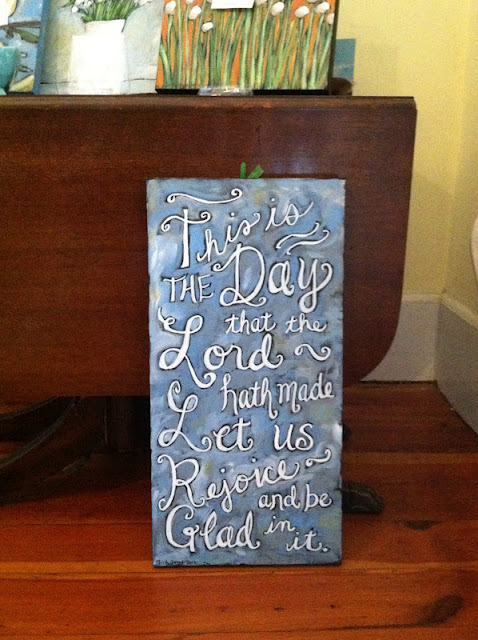 This is
THE Day
that the
Lord
hath made
Let us
Rejoice
and be
Glad in
it.